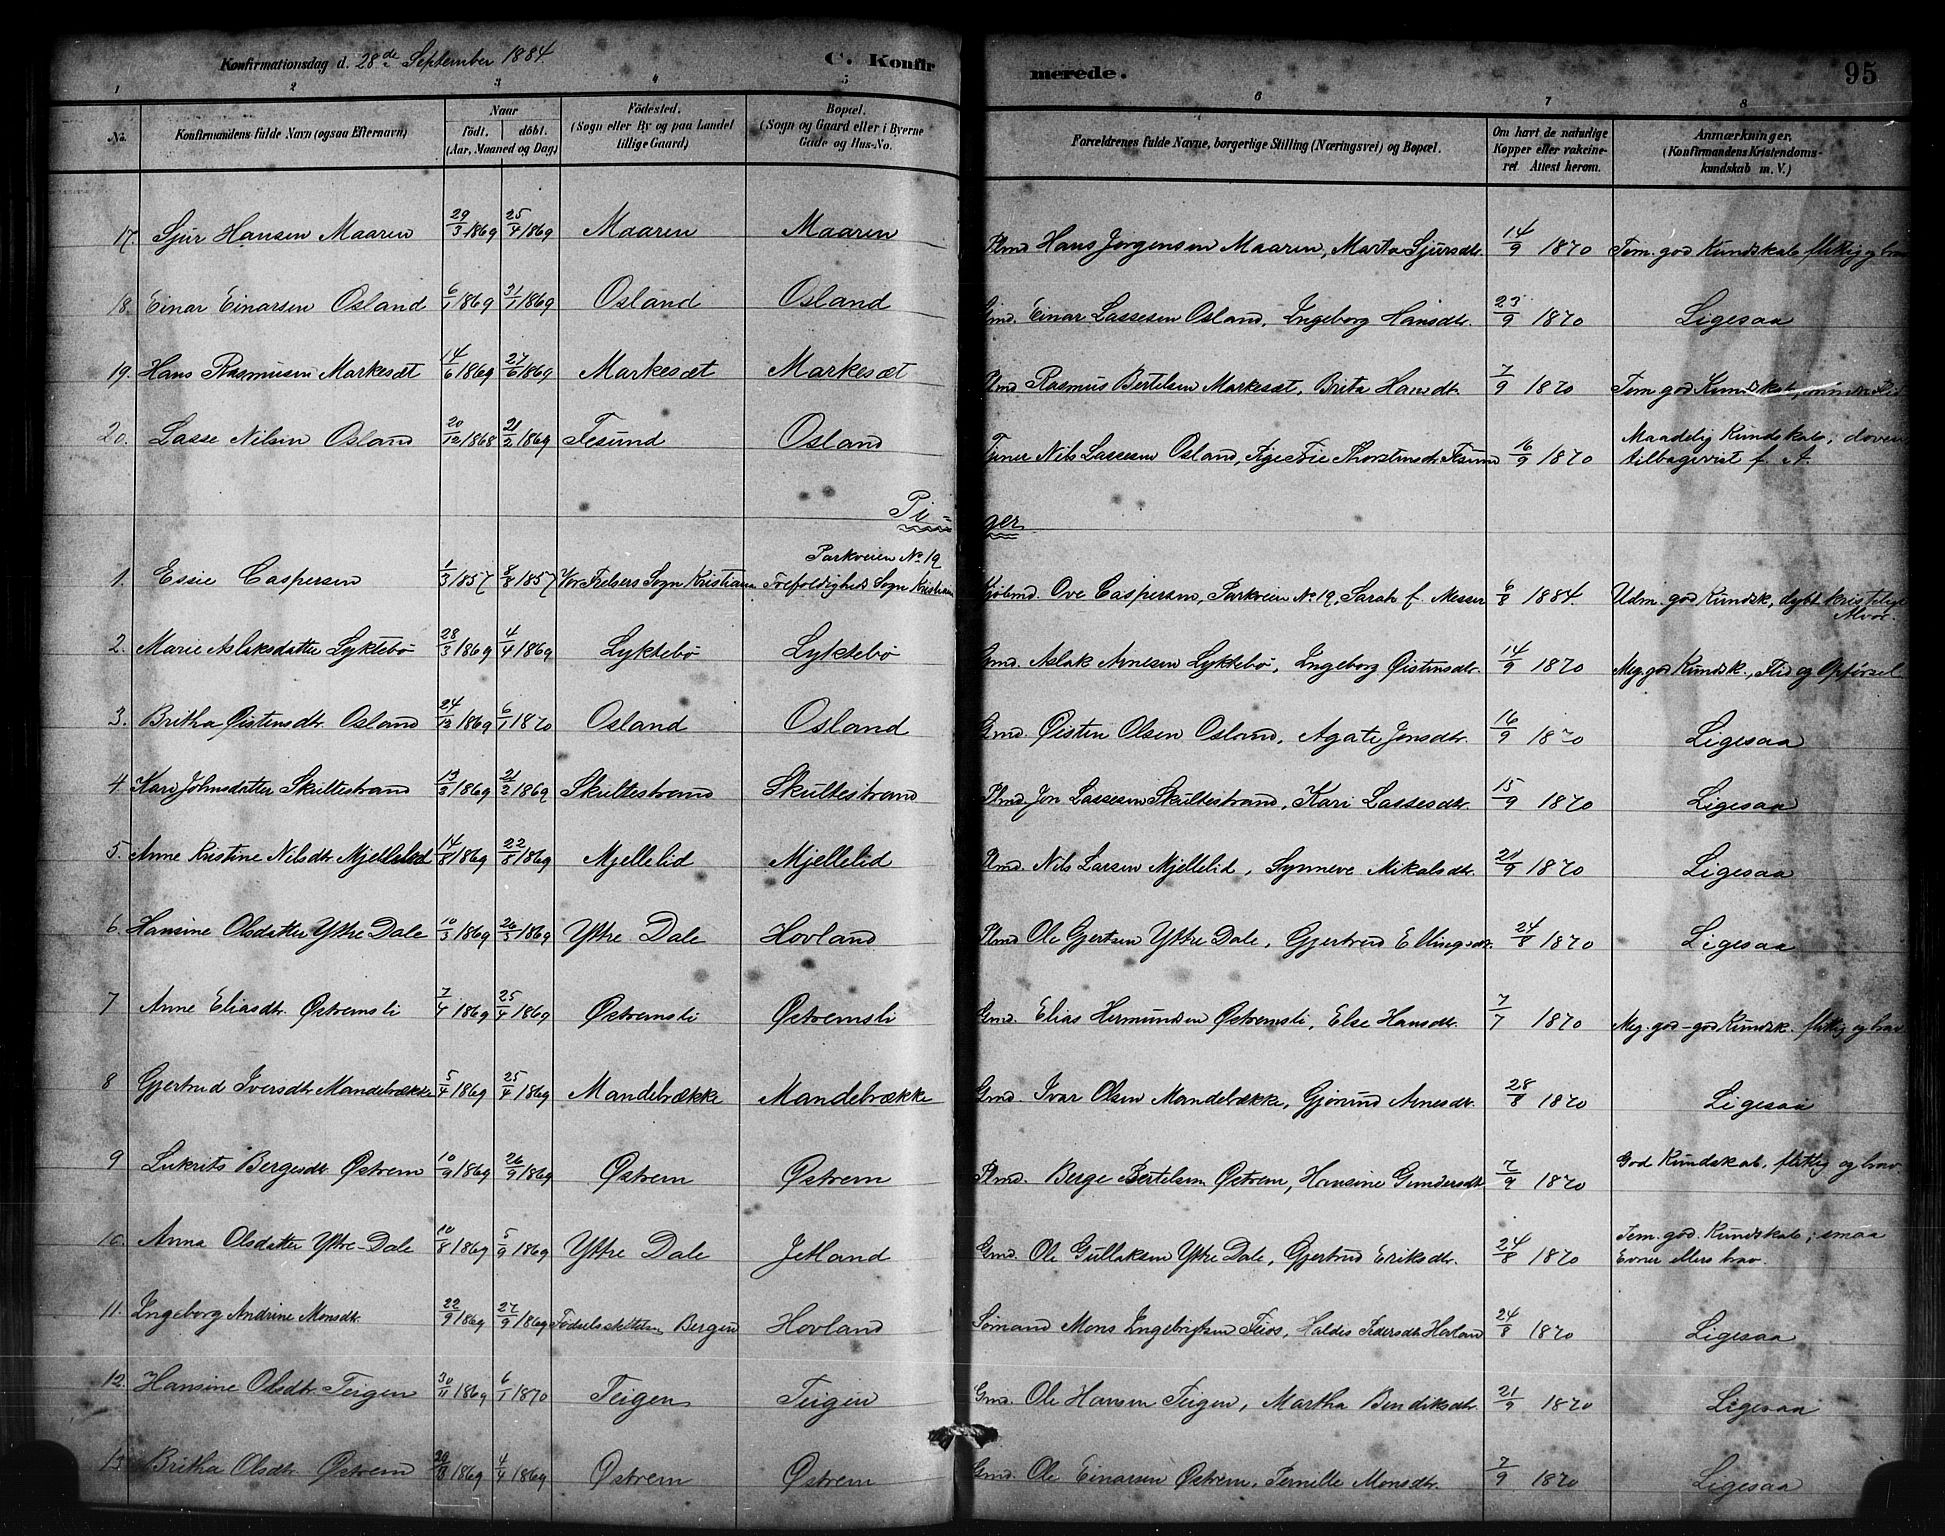 Konfirmationsdag d. 28de September 1884. C. Konfirmerede. 95
1 2 3 4 5 6 7 8
No. Konfirmandens fulde Navn (ogsaa Efternavn) Naar födt. döbt. (Aar, Maaned og Dag) Födested. (Sogn eller By og paa Landet tillige Gaard) Bopæl. (Sogn og Gaard eller i Byerne Gade og Hus-No. Forældrenes fulde Navne, borgerlige Stilling (Næringsvei) og Bopæl. Om havt de naturlige Kopper eller vakcineret. Attest herom. Anmærkninger. (Konfirmandens Kristendomskundskab m. V.)
17. Sjur Hansen Maaren 29/3 1869 25/4 1869 Maaren Maaren Plmd Hans Jørgensen Maaren, Marta Sjursdtr. 14/9 1870 Tem. god Kundskab, flittig og brav
18. Einar Einarsen Osland 6/1 1869 31/1 1869 Osland Osland Gmd. Einar Lassesen Osland, Ingeborg Hansdtr. 23/9 1870 Ligesaa
19. Hans Rasmusen Markesæt 14/6 1869 27/6 1869 Markesæt Markesæt Plmd Rasmus Bertelsen Markesæt, Brita Hansdtr. 7/9 1870 Tem. god Kundskab, mindre Flid
20. Lasse Nilsen Osland 20/12 1868 21/2 1869 Tesund Osland Tjener Nils Lassesen Osland, Pige Thorstensdtr Tesund 16/9 1870 Maadelig Kundskab, doven tilbagevist f. A.
Piger
1. Essie Caspersen 1/3 1857 8/8 1857 Vor Frelsers Sogn Kristiania Parkveien No 19 Trefoldigheds Sogn Kristiania Kjøbmd. Ove Caspersen, Parkveien No 19, Sarah f. Messer 6/8 1884. Udm. god Kundsk., dybt kristeligt Alvor.
2. Marie Aslaksdatter Lyktebø 28/3 1869 4/4 1869 Lyktebø Lyktebø Gmd. Aslak Arnesen Lyktebø, Ingeborg Øistensdtr. 14/9 1870 Meg. god Kundsk., Flid og Opførsel
3. Britha Øistensdtr. Osland 24/12 1869 6/1 1870 Osland Osland Gmd. Østen Olsen Osland, Agate Jonsdtr. 16/9 1870 Ligesaa
4 Kari Johnsdatter Skultestrand 13/2 1869 21/2 1869 Skultestrand Skultestrand Plmd Jon Lassesen Skultestrand, Kari Lassesdtr. 15/9 1870 Ligesaa
5. Anne Kristine Nilsdtr. Mjellelid 14/8 1869 22/8 1869 Mjellelid Mjellelid Plmd. Nils Larsen Mjellelid, Synneve Mikalsdtr. 20/9 1870 Ligesaa
6. Hansine Olsdatter Ytre Dale 10/3 1869 26/3 1869 Ytre Dale Hovland Plmd Ole Gjertsen Ytre Dale, Gjertrud Ellingsdtr. 24/8 1870 Ligesaa
7 Anne Eliasdtr. Østremsli 7/4 1869 25/4 1869 Østremsli Østremsli Gmd. Elias Hermundsen Østremsli, Else Hansdtr. 7/7 1870 Meg. god - god Kundsk. flittig og brav
8 Gjertrud Iversdtr. Mandebrække 5/4 1869 25/4 1869 Mandebrække Mandebrække Gmd Ivar Olsen Mandebrække, Gjørund Arnesdtr. 28/8 1870 Ligesaa
9 Lukrits Bergesdtr. Østrem 10/9 1869 26/9 1869 Østrem Østrem Plmd. Berge Bertelsen Østrem, Hansine Gundersdtr 7/9 1870 God Kundskab, flittig og brav
10. Anna Olsdatter Ytre-Dale 10/8 1869 5/9 1869 Ytre Dale Jetland Gmd. Ole Gullaksen Ytre Dale, Gjertrud Eriksdtr. 24/8 1870 Tem. god Kundskab; smaa Evner ellers brav.
11. Ingeborg Andrine Monsdtr. 22/9 1869 27/9 1869 Fødselsstiftelsen Bergen Hovland Sømand Mons Ingebrigtsen Feios, Haldis Pedersdtr Hovland 24/8 1870 Ligesaa
12. Hansine Olsdtr. Teigen 30/11 1869 6/1 1870 Teigen Teigen Gmd. Ole Hansen Teigen, Martha Bendiksdtr. 21/9 1870 Ligesaa
13. Britha Olsdtr. Østrem 1869 4/4 1869 Østrem Østrem Gmd. Ole Einarsen Østrem, Pernille Monsdtr. 7/9 1870 Ligesaa